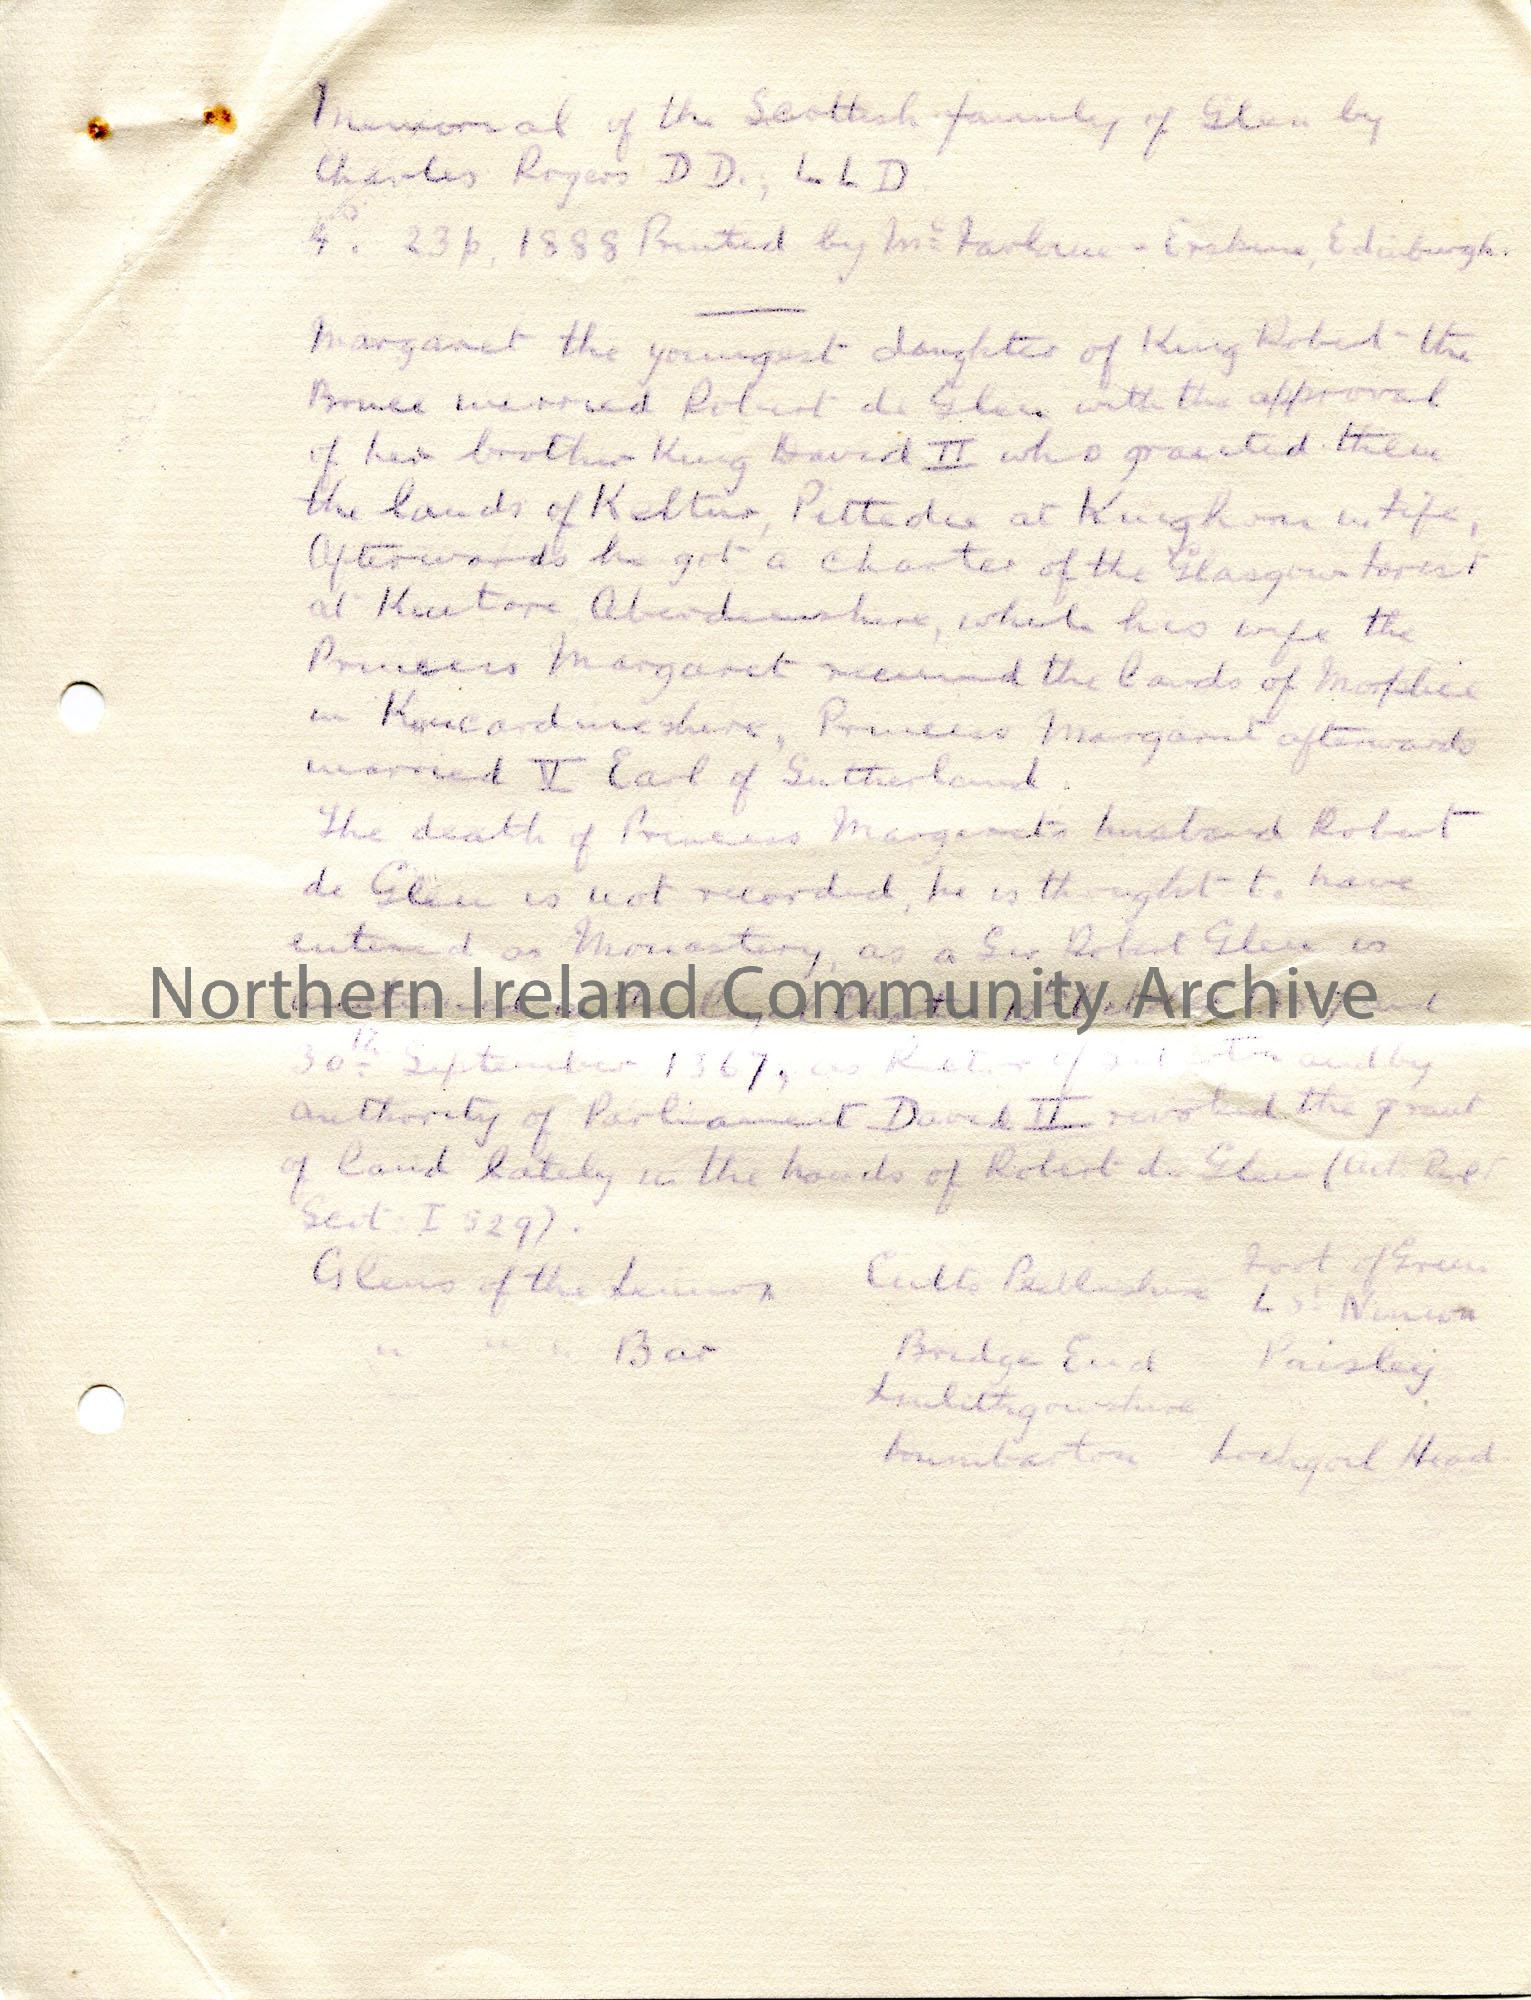 Memorial of the Scottish family of Glen by
Charles Rogers D D., L L D
4º. 23p, 1888 Printed by McFarlane - Erskine, Edinburgh.
Margaret the youngest daughter of King Robert the
Bruce married Robert de Glen with the approval
of her brother King David II who granted them
the lands of Pittedie at Kinghorn in Fife,
Afterwards he got a charter of the Glasgow Forest
at Kintore Aberdeenshire, while his wife the
Princess Margaret received the lands of Morphie
in Kincardineshire, Princess Margaret afterwards
married V Earl of Sutherland.
The death of Princess Margarets husband Robert
de Glen is not recorded, he is thought to have
entered as Monastery, as a Sir Robert Glen is
Northern Ireland Community Archive
30th September 1367, as Rector of and by
authority of Parliament David II revoked the grant
of land lately in the hands of Robert de Glen (Act. Parl
Scot: I 529).
Glens of the Lennox Cults Peeblesshire Foot of Green
" " " Bar St Ninian
Bridge End Paisley
Linlithgowshire
Dumbarton Lochgoil Head